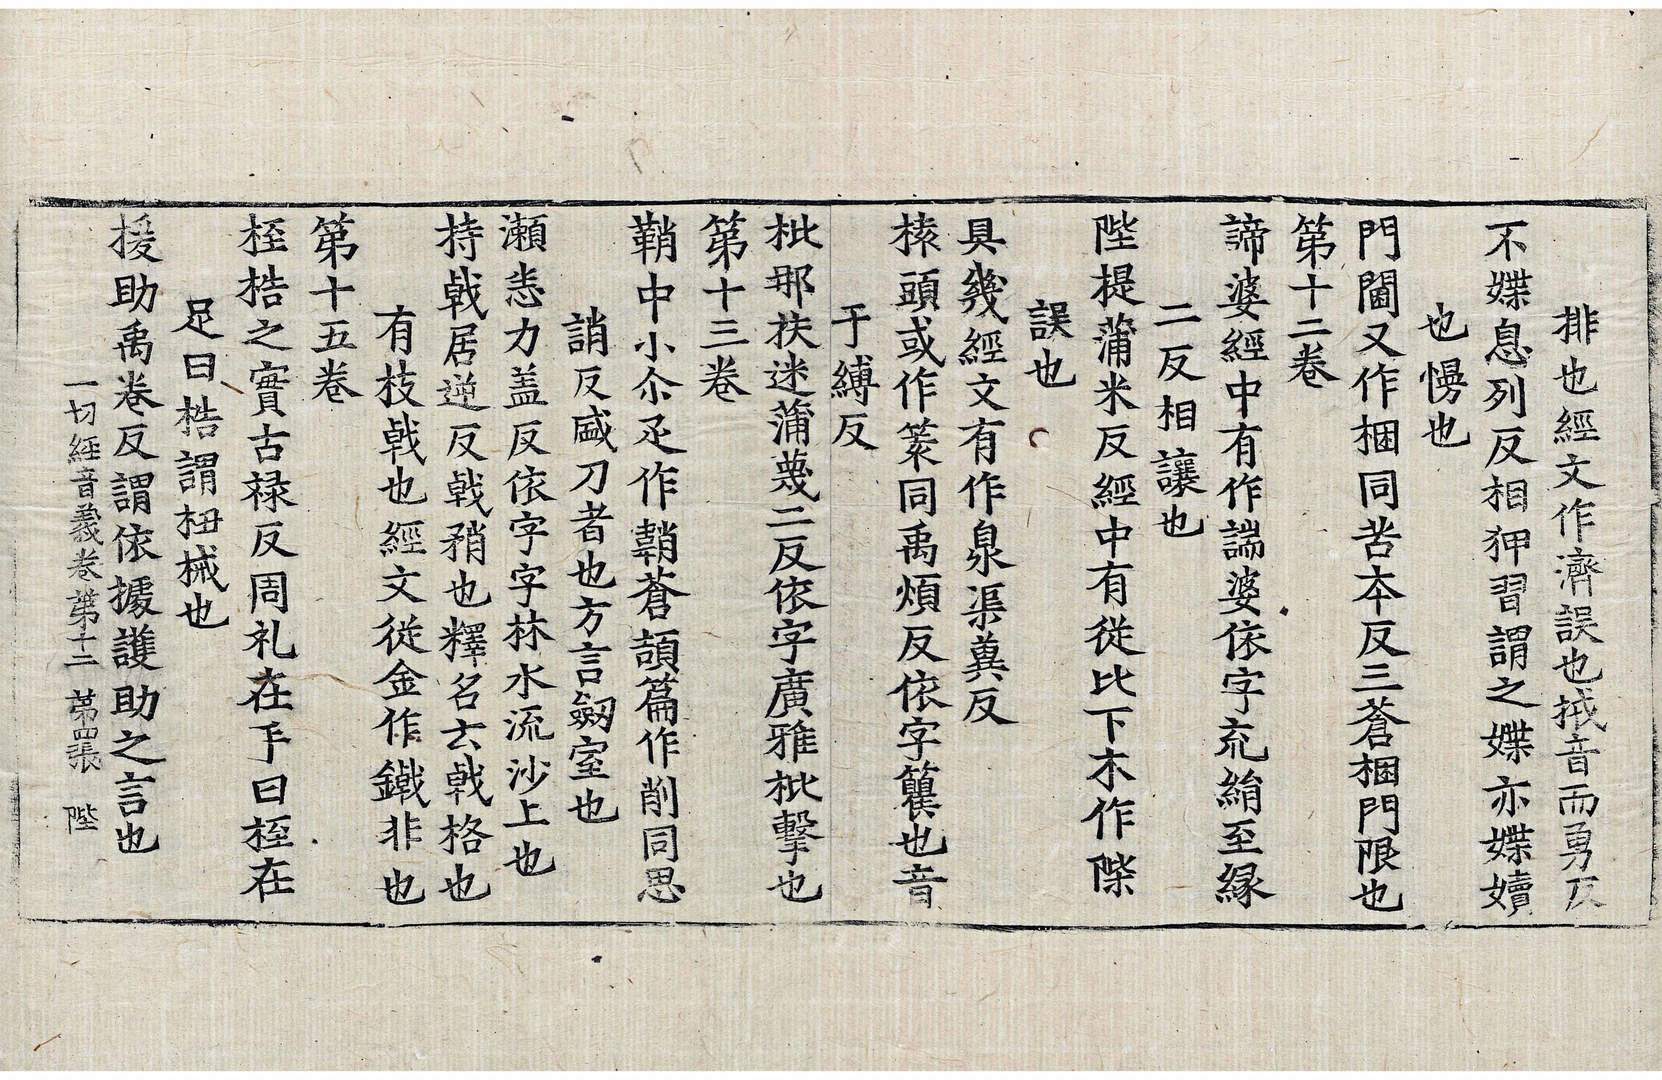 排也經文作濟誤也拭音而勇反
不媟息列反相狎習謂之媟亦媟嬻
也慢也
門閫又作梱同苦本反三蒼梱門限也
第十二卷
諦婆經中有作諯婆依字充絹至緣
二反相讓也
陛提蒲米反經中有從比下木作陛
誤也
具幾經文有作臮渠兾反
榬頭或作䈠同禹煩反依字籰也音
于縛反
枇那扶迷蒲蔑二反依字廣雅枇擊也
第十三卷
鞘中小尒疋作鞩蒼頡篇作削同思
誚反盛刀者也方言劒室也
瀨恚力盖反依字字林水流沙上也
持戟居逆反戟矟也釋名云戟格也
有枝戟也經文從金作鐵非也
第十五卷
桎梏之實古祿反周礼在手曰桎在
足曰梏謂杻械也
援助禹卷反謂依據護助之言也
一切經音義卷第十二 第四張 陛